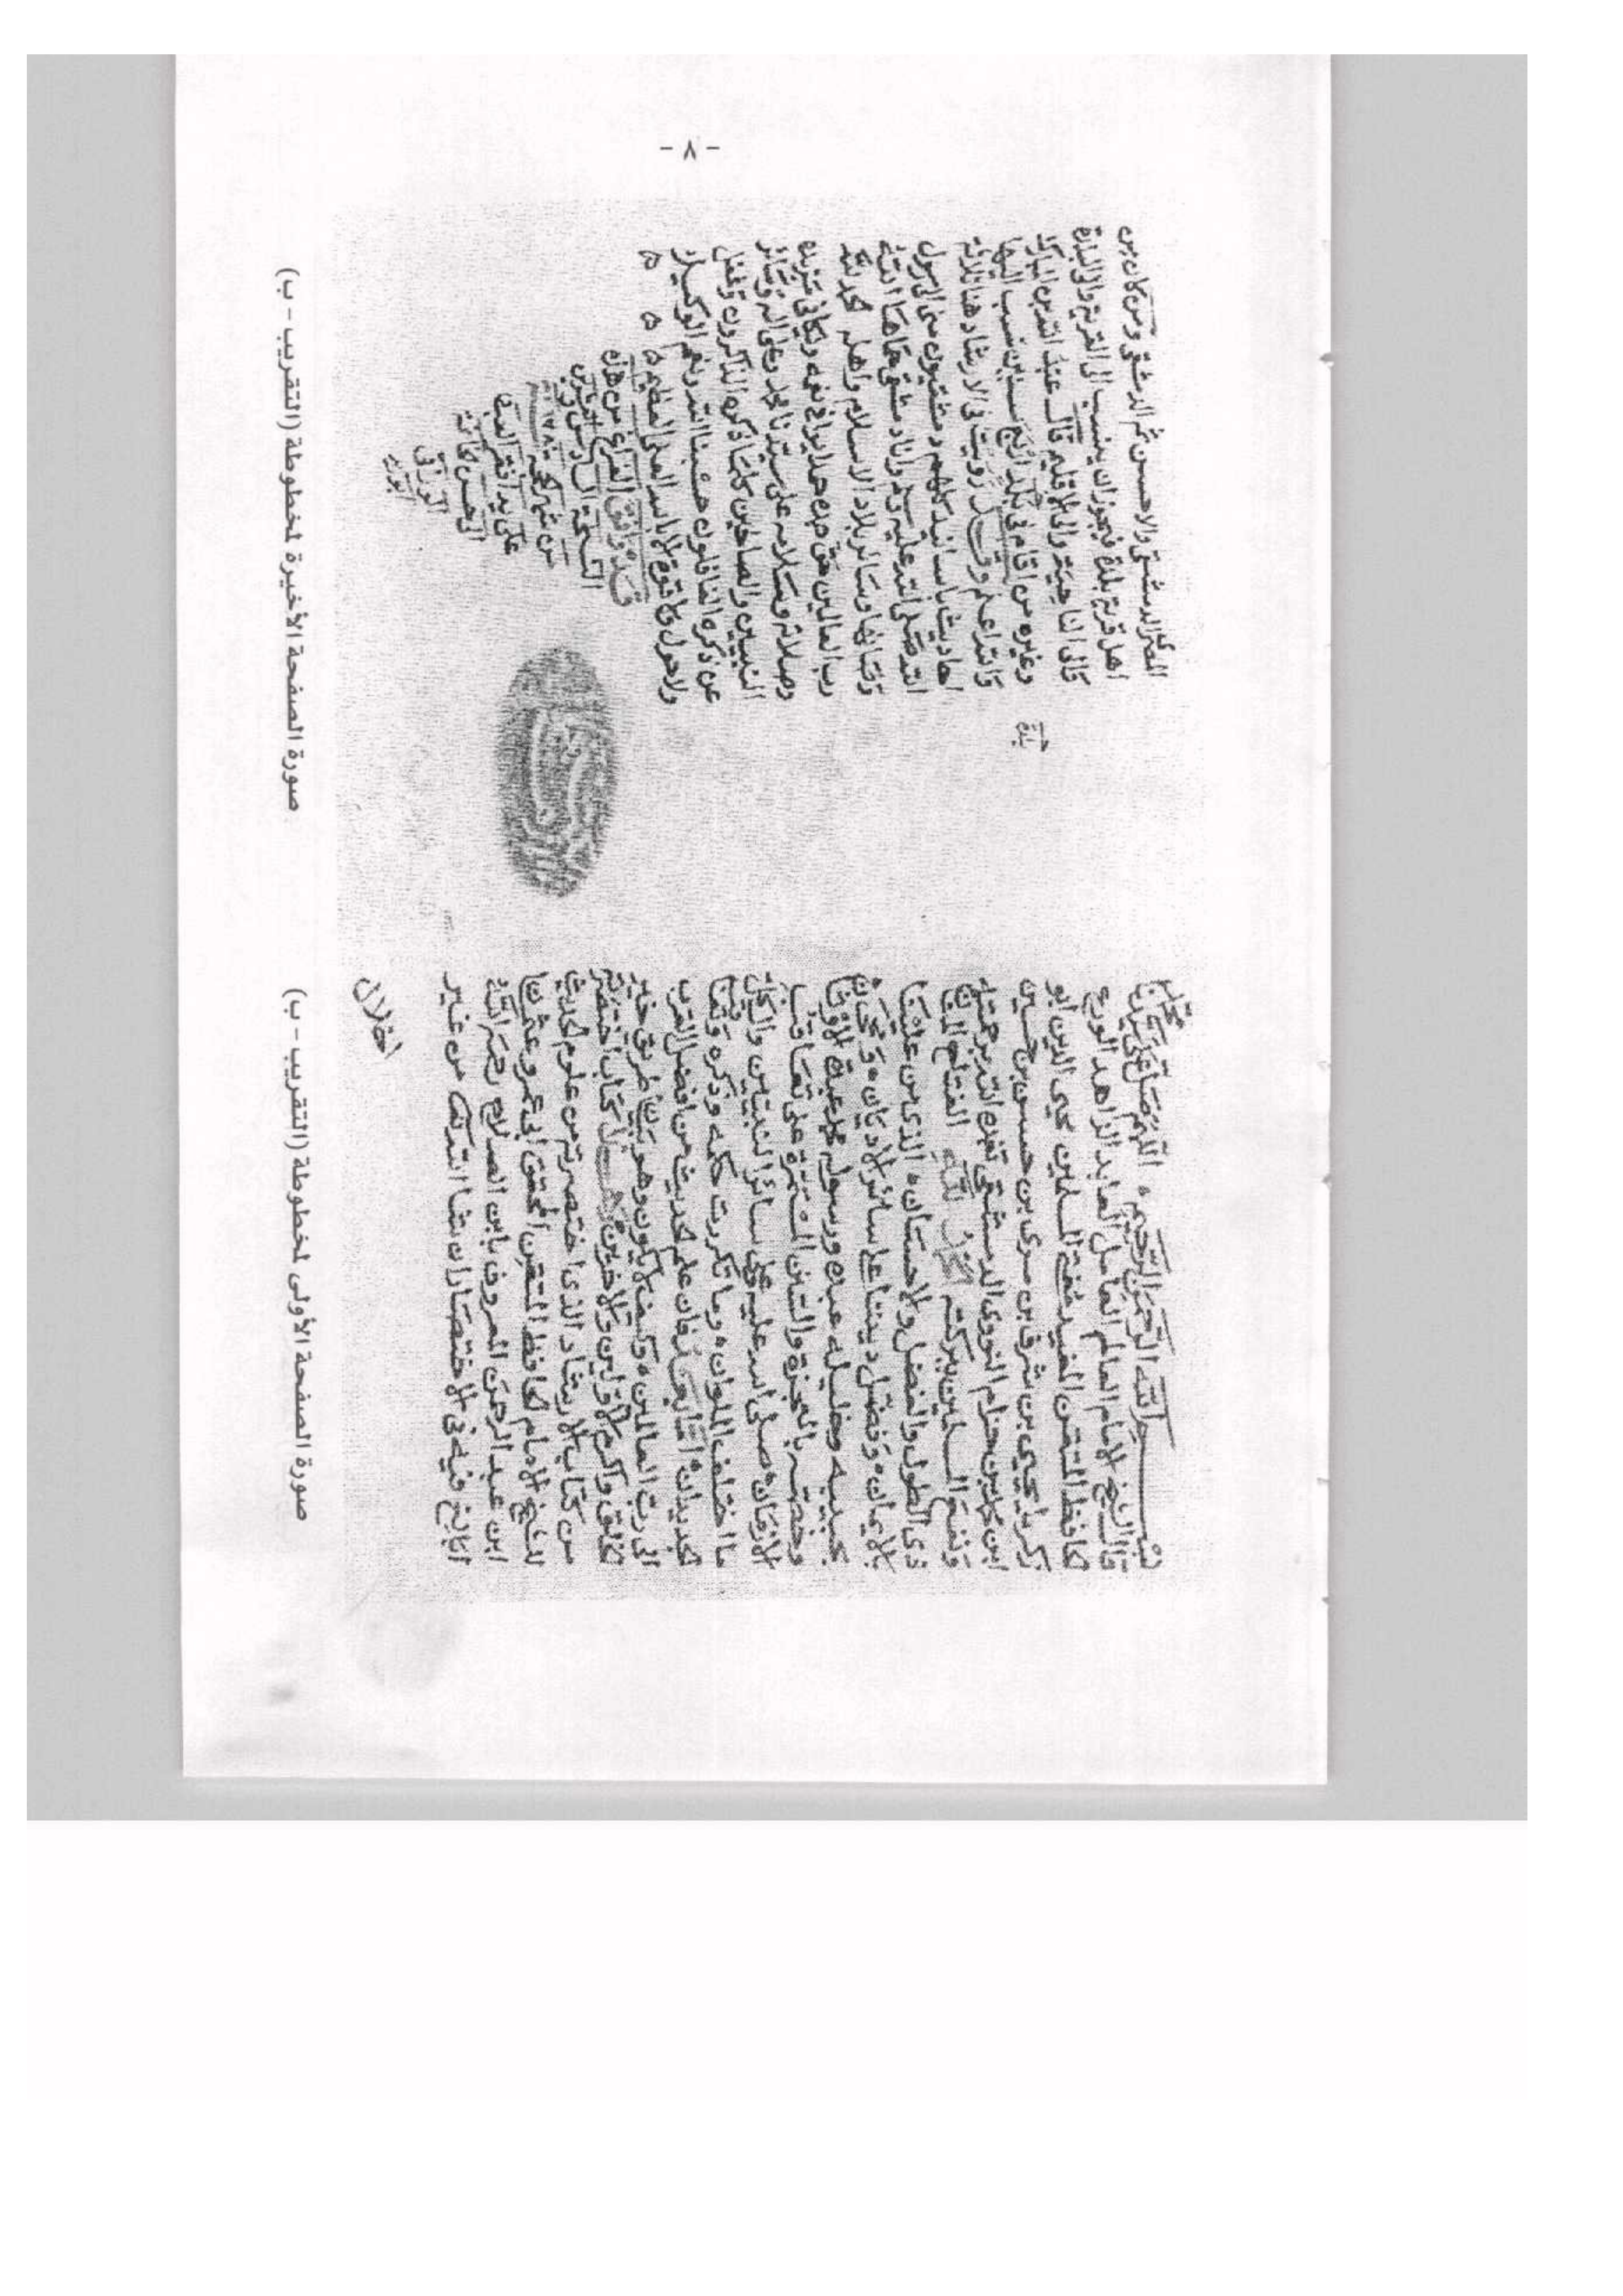 - ٨ -
بسم الله الرحمن الرحيم ه اللهم صل على سيدنا محمد
قال الشيخ الامام العالم العامل العابد الزاهد الورع
الحافظ المتقن المفيد مفتي المسلمين محيي الدين ابو
زكريا يحيى بن شرف بن مرى بن حسن بن حسين
ابن محمد بن حزام النووي الدمشقي تغمده الله برحمته
ونفع المسلمين ببركته الحمد لله الفتاح المنان
ذي الطول والفضل والاحسان ه الذي من علينا
بالايمان ه وفضل ديننا على سائر الاديان ه ومحا
بحبيبه وخليله عبده ورسوله محمد عبادة الاوثان
وخصه بالمعجزة والسنن المستمرة على تعاقب
الازمان ه صلى الله عليه وعلى سائر النبيين وآل كل
ما اختلف الملوان ه وما تكررت حكمه وذكره وتعاقب
الجديدان ه اما بعد فان علم الحديث من افضل القرب
الى رب العالمين ه وكيف لا يكون وهو بيان طريق خير
الخلق واكرم الاولين والآخرين وهذا كتاب اختصرته
من كتاب الارشاد الذي اختصرته من علوم الحديث
للشيخ الامام الحافظ المتقن المحقق ابي عمرو عثمان
ابن عبد الرحمن المعروف بابن الصلاح رحمه الله
ابالغ فيه في الاختصار ان شاء الله تعالى من غير
اخلال
صورة الصفحة الأولى لمخطوطة (التقريب - ب)
المصري الدمشقي والاحسن ثم الدمشقي ومن كان من
اهل قرية بلدة فيجوز ان ينسب الى القرية والى البلدة
والى الناحية والى الاقليم قال عبد الله بن المبارك
وغيره من اقام في بلد اربع سنين نسب اليها
بلدة
والله اعلم ورويت في الارشاد هنا ثلاثة
احاديث باسانيد كلهم دمشقيون مني الى رسول
الله صلى الله عليه وسلم وانا دمشقي حماها الله
وصانها وسائر بلاد الاسلام واهله الحمد لله
رب العالمين حق حمده حمدا يوافي نعمه ويكافي مزيده
وصلاته وسلامه على سيدنا محمد وعلى آله وسائر
النبيين والصالحين كلما ذكره الذاكرون وغفل
عن ذكره الغافلون حسبنا الله ونعم الوكيل
ولا حول ولا قوة الا بالله العلي العظيم ه ه ه
وافق الفراغ من هذه
النسخة
من شهر
على يد افقر العبيد
الوراق
صورة الصفحة الأخيرة لمخطوطة (التقريب - ب)